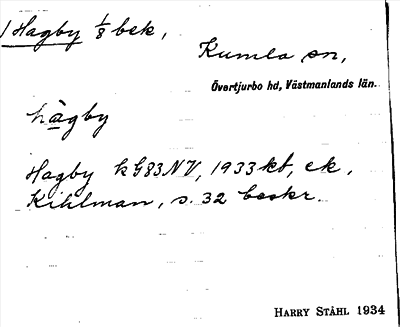 1 Hagby 1/8 bek,
Kumla sn,
Övertjurbo hd, Västmanlands län.
hàgby
Hagby k G83NV, 1933 kb, ek,
Kihlman, s. 32 beskr.
HARRY STÅHL 1934